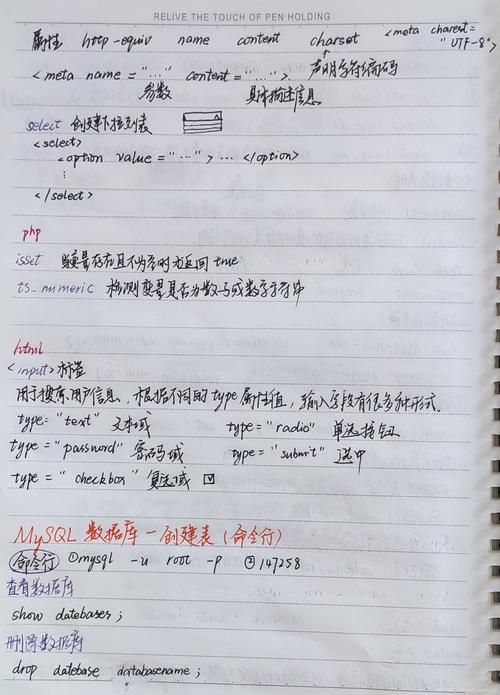 RELIVE THE TOUCH OF PEN HOLDING
属性 http-equiv name content charset <meta charest="UTF-8">
<meta name="..." content="..."> 声明字符编码
参数 具体描述信息
select 创建下拉列表
<select>
<option value="..."> ... </option>
⋮
</select>
php
isset 当变量存在且不为空时才返回true
is_numeric 检测变量是否为数字或数字字符串
html
<input>标签
用于搜索用户信息，根据不同的type属性值，输入字段有很多种形式.
type="text" 文本域 type="radio" 单选按钮
type="password" 密码域 type="submit" 选中
type="checkbox" 复选域
MySQL 数据库-创建表（命令行）
命令行 ①mysql -u root -p ②147258
查看数据库
show datebases;
删除数据库
drop datebase databasename;